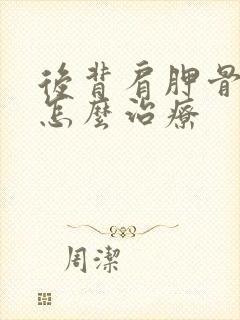 後背肩胛骨
怎麼治療
周潔